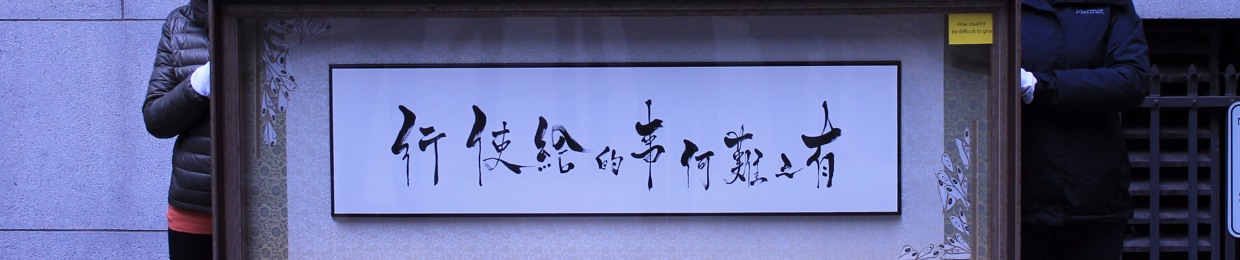 行使給的事何難之有
How could it
be difficult to give
Marmot